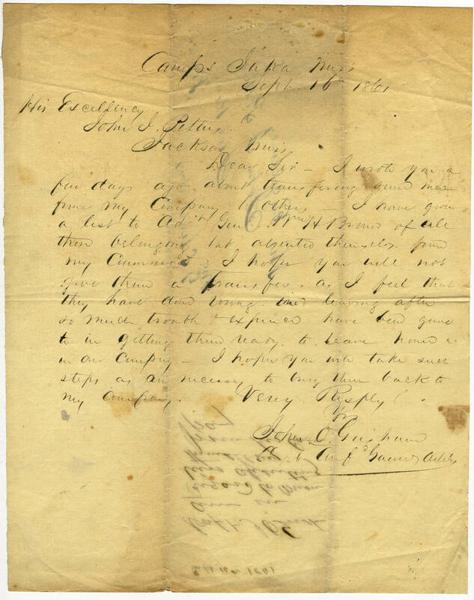 Camp Iuka Miss
Sept 16th 1861
His Excellency
John J. Pettus
Jackson Miss
Dear Sir - I wrote you a
few days ago about transfering some men
from my Company to others - I have given
a list to Adj Gen of all
those belonging but absented themselves from
my Command I hope you will not
give them a transfer as I feel that
they have done wrong and leaving after
so much trouble & expence have been gone
to in getting them ready to leave home
in our Company - I hope you will take such
steps as are necessary to bring them back to
my company. Very Respfly
John
Capt
1861